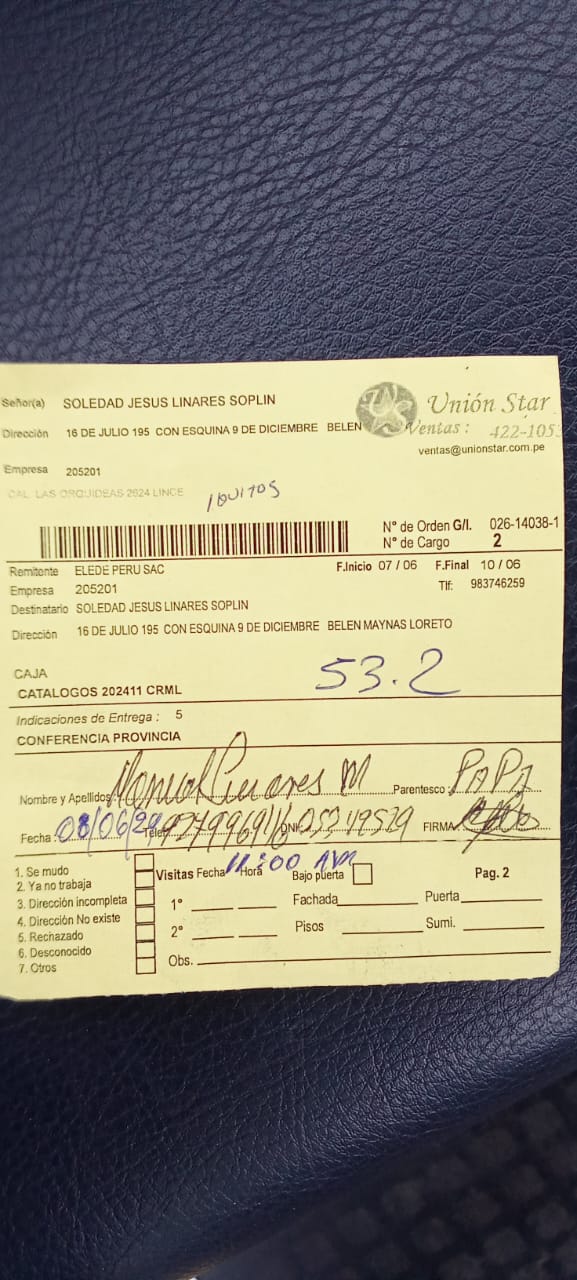 Señor(a) SOLEDAD JESUS LINARES SOPLIN
Unión Star
Dirección 16 DE JULIO 195 CON ESQUINA 9 DE DICIEMBRE BELEN
Ventas : 422-105
ventas@unionstar.com.pe
Empresa 205201
CAL LAS ORQUIDEAS 2624 LINCE
IQUITOS
N° de Orden G/I. 026-14038-1
N° de Cargo 2
Remitente ELEDE PERU SAC F.Inicio 07 / 06 F.Final 10 / 06
Empresa 205201 Tlf: 983746259
Destinatario SOLEDAD JESUS LINARES SOPLIN
Dirección 16 DE JULIO 195 CON ESQUINA 9 DE DICIEMBRE BELEN MAYNAS LORETO
53.2
CAJA
CATALOGOS 202411 CRML
Indicaciones de Entrega : 5
CONFERENCIA PROVINCIA
Nombre y Apellidos Manuel Linares M Parentesco PAPA
Fecha : 08/06/24 DNI FIRMA
11:00 AM
1. Se mudo
2. Ya no trabaja
3. Dirección incompleta
4. Dirección No existe
5. Rechazado
6. Desconocido
7. Otros
Visitas Fecha Hora Bajo puerta Pag. 2
1° Fachada Puerta
2° Pisos Sumi.
Obs.